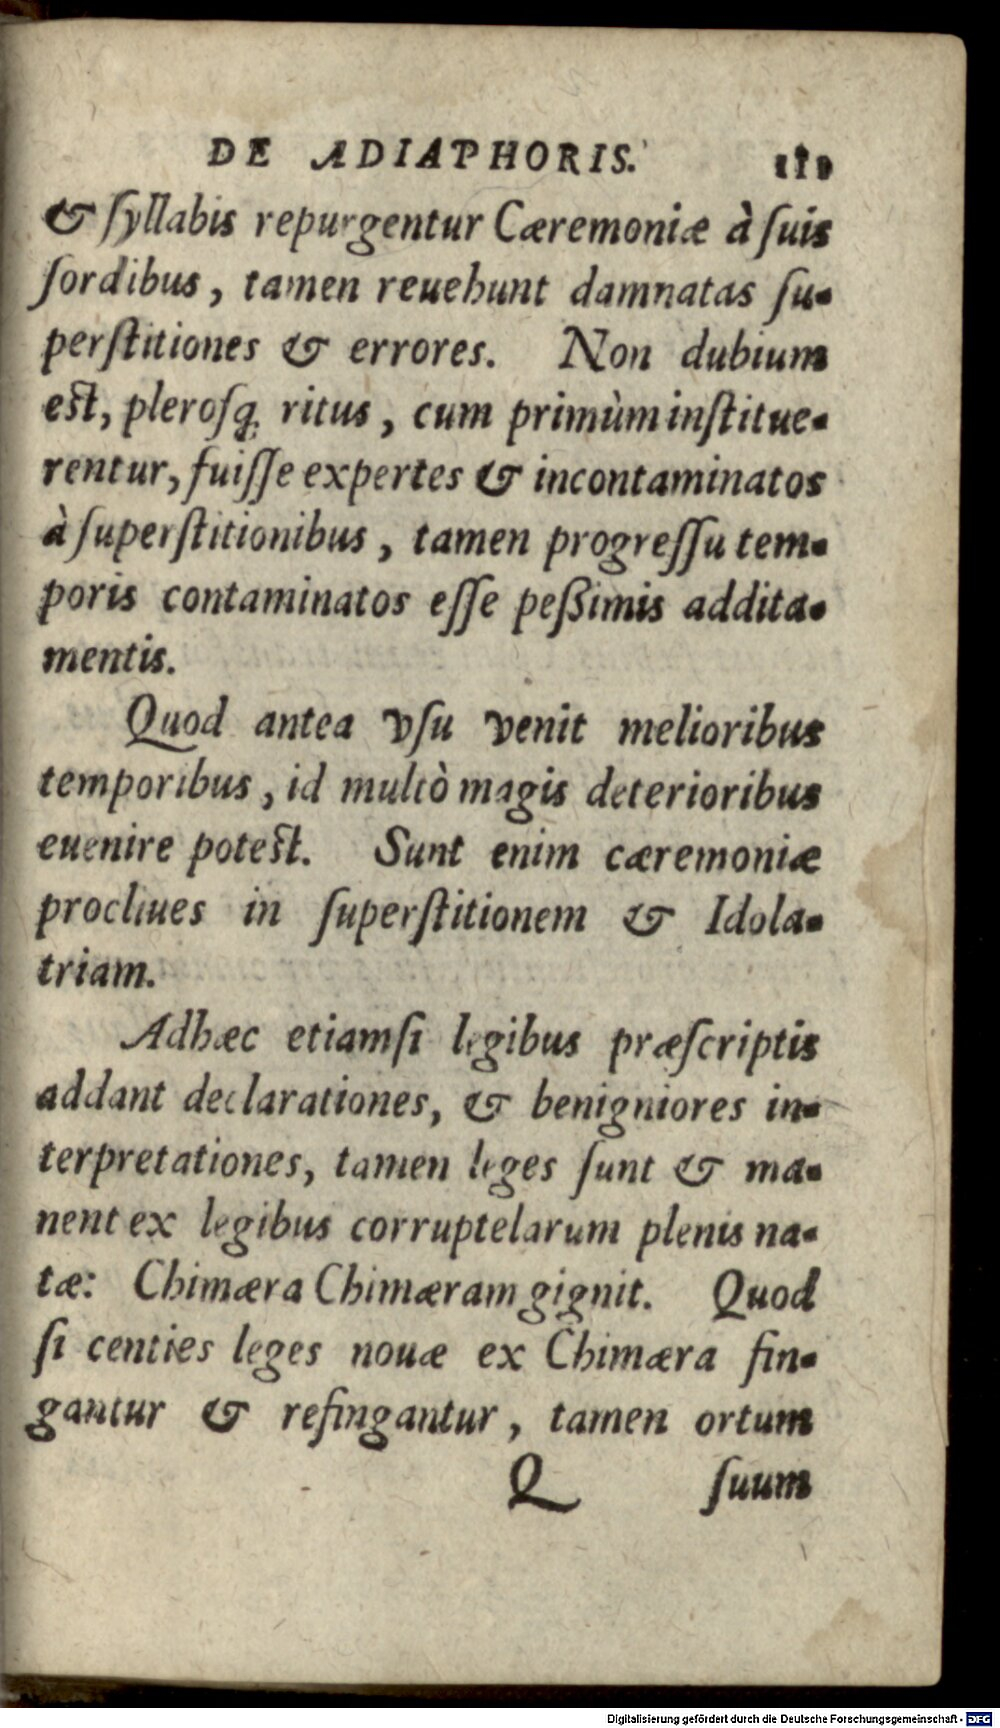 DE ADIAPHORIS.
& ſyllabis repurgentur Cæremoniæ à ſuis
ſordibus, tamen reuehunt damnatas ſu-
perſtitiones & errores. Non dubium
eſt, pleroſq; ritus, cum primùm inſtitue-
rentur, fuiſſe expertes & incontaminatos
à ſuperſtitionibus, tamen progreſſu tem-
poris contaminatos eſſe peßimis addita-
mentis.
Quod antea vſu venit melioribus
temporibus, id multò magis deterioribus
euenire poteſt. Sunt enim cæremoniæ
procliues in ſuperſtitionem & Idola-
triam.
Adhæc etiamſi legibus præſcriptis
addant declarationes, & benigniores in-
terpretationes, tamen leges ſunt & ma-
nent ex legibus corruptelarum plenis na-
tæ: Chimæra Chimæram gignit. Quod
ſi centies leges nouæ ex Chimæra fin-
gantur & refingantur, tamen ortum
Q ſuum
Digitalisierung gefördert durch die Deutsche Forschungsgemeinschaft - DFG